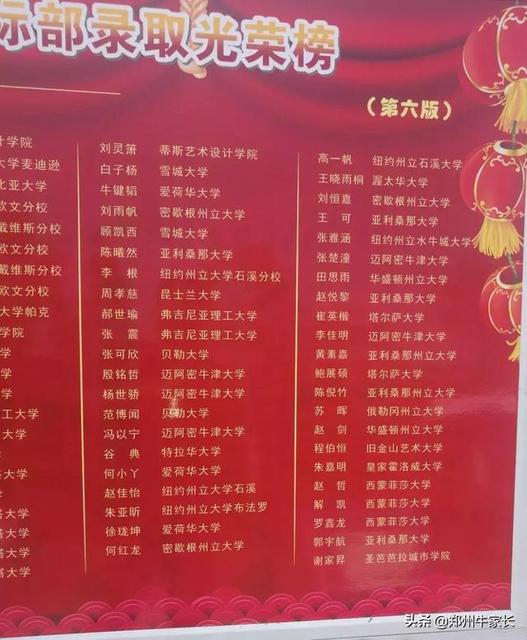 际部录取光荣榜
（第六版）
计学院
大学麦迪逊
比亚大学
欧文分校
戴维斯分校
欧文分校
戴维斯分校
欧文分校
大学帕克
学院
学
学
学
工大学
大学
学
大学
学
大学
大学
大学
大学
刘灵箫 蒂斯艺术设计学院
白子杨 雪城大学
牛键韬 爱荷华大学
刘雨帆 密歇根州立大学
顾凯西 雪城大学
陈曦然 亚利桑那大学
李根 纽约州立大学石溪分校
周孝慈 昆士兰大学
郝世瑜 弗吉尼亚理工大学
张震 弗吉尼亚理工大学
张可欣 贝勒大学
殷铭哲 迈阿密牛津大学
杨世骄 迈阿密牛津大学
范博闻 贝勒大学
冯以宁 迈阿密牛津大学
谷典 特拉华大学
何小丫 爱荷华大学
赵佳怡 纽约州立大学石溪
朱亚昕 纽约州立大学布法罗
徐珑坤 爱荷华大学
何红龙 密歇根州立大学
高一帆 纽约州立石溪大学
王晓雨桐 渥太华大学
刘恒嘉 密歇根州立大学
王可 亚利桑那大学
张雅涵 纽约州立水牛城大学
张楚潼 迈阿密牛津大学
田思雨 华盛顿州立大学
赵悦黎 亚利桑那大学
崔英楷 塔尔萨大学
李佳明 迈阿密牛津大学
黄素嘉 亚利桑那州立大学
鲍展硕 塔尔萨大学
陈倪竹 亚利桑那州立大学
苏晖 俄勒冈州立大学
赵剑 华盛顿州立大学
程伯恒 旧金山艺术大学
朱嘉明 皇家霍洛威大学
赵哲 西蒙菲莎大学
解凯 西蒙菲莎大学
罗鑫龙 西蒙菲莎大学
郭宇航 亚利桑那大学
谢家昇 圣芭芭拉城市学院
头条 @郑州牛家长